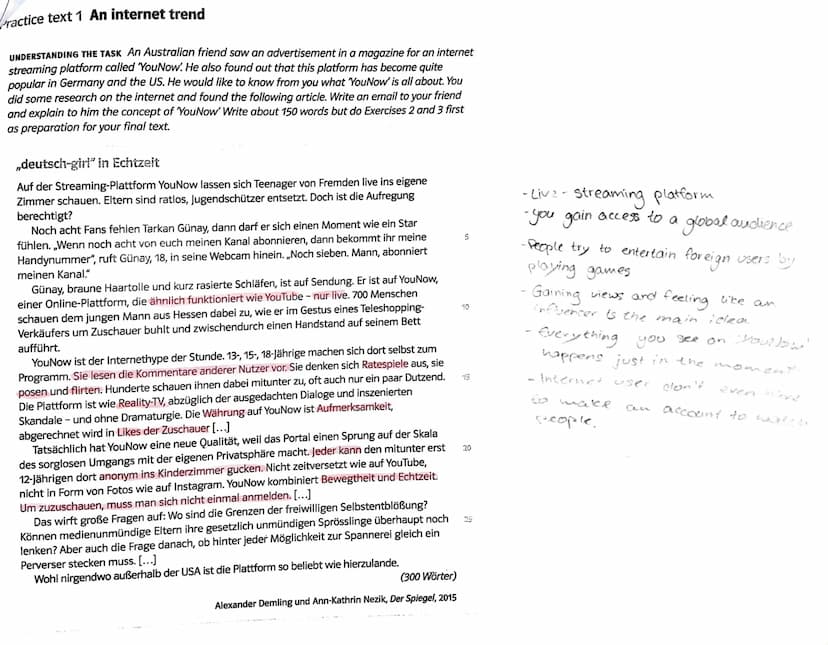 Practice text 1 An internet trend
UNDERSTANDING THE TASK An Australian friend saw an advertisement in a magazine for an internet
streaming platform called 'YouNow'. He also found out that this platform has become quite
popular in Germany and the US. He would like to know from you what 'YouNow' is all about. You
did some research on the internet and found the following article. Write an email to your friend
and explain to him the concept of 'YouNow' Write about 150 words but do Exercises 2 and 3 first
as preparation for your final text.
„deutsch-girl“ in Echtzeit
Auf der Streaming-Plattform YouNow lassen sich Teenager von Fremden live ins eigene
Zimmer schauen. Eltern sind ratlos, Jugendschützer entsetzt. Doch ist die Aufregung
berechtigt?
Noch acht Fans fehlen Tarkan Günay, dann darf er sich einen Moment wie ein Star
fühlen. „Wenn noch acht von euch meinen Kanal abonnieren, dann bekommt ihr meine 5
Handynummer“, ruft Günay, 18, in seine Webcam hinein. „Noch sieben. Mann, abonniert
meinen Kanal.“
Günay, braune Haartolle und kurz rasierte Schläfen, ist auf Sendung. Er ist auf YouNow,
einer Online-Plattform, die ähnlich funktioniert wie YouTube – nur live. 700 Menschen
schauen dem jungen Mann aus Hessen dabei zu, wie er im Gestus eines Teleshopping- 10
Verkäufers um Zuschauer buhlt und zwischendurch einen Handstand auf seinem Bett
aufführt.
YouNow ist der Internethype der Stunde. 13-, 15-, 18-Jährige machen sich dort selbst zum
Programm. Sie lesen die Kommentare anderer Nutzer vor. Sie denken sich Ratespiele aus, sie
posen und flirten. Hunderte schauen ihnen dabei mitunter zu, oft auch nur ein paar Dutzend. 15
Die Plattform ist wie Reality-TV, abzüglich der ausgedachten Dialoge und inszenierten
Skandale – und ohne Dramaturgie. Die Währung auf YouNow ist Aufmerksamkeit,
abgerechnet wird in Likes der Zuschauer […]
Tatsächlich hat YouNow eine neue Qualität, weil das Portal einen Sprung auf der Skala
des sorglosen Umgangs mit der eigenen Privatsphäre macht. Jeder kann den mitunter erst 20
12-Jährigen dort anonym ins Kinderzimmer gucken. Nicht zeitversetzt wie auf YouTube,
nicht in Form von Fotos wie auf Instagram. YouNow kombiniert Bewegtheit und Echtzeit.
Um zuzuschauen, muss man sich nicht einmal anmelden. […]
Das wirft große Fragen auf: Wo sind die Grenzen der freiwilligen Selbstentblößung?
Können medienunmündige Eltern ihre gesetzlich unmündigen Sprösslinge überhaupt noch 25
lenken? Aber auch die Frage danach, ob hinter jeder Möglichkeit zur Spannerei gleich ein
Perverser stecken muss. […]
Wohl nirgendwo außerhalb der USA ist die Plattform so beliebt wie hierzulande.
(300 Wörter)
Alexander Demling und Ann-Kathrin Nezik, Der Spiegel, 2015
- Live - streaming platform
- you gain access to a global audience
- People try to entertain foreign users by
playing games
- Gaining views and feeling like an
influencer is the main idea
- Everything you see on 'YouNow'
happens just in the moment
- Internet user don't even need
to make an account to watch
people.